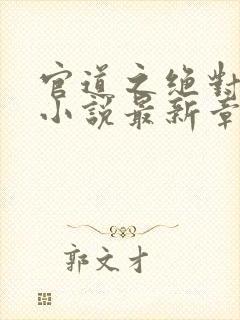 官道之絕對
小說最新章
郭文才